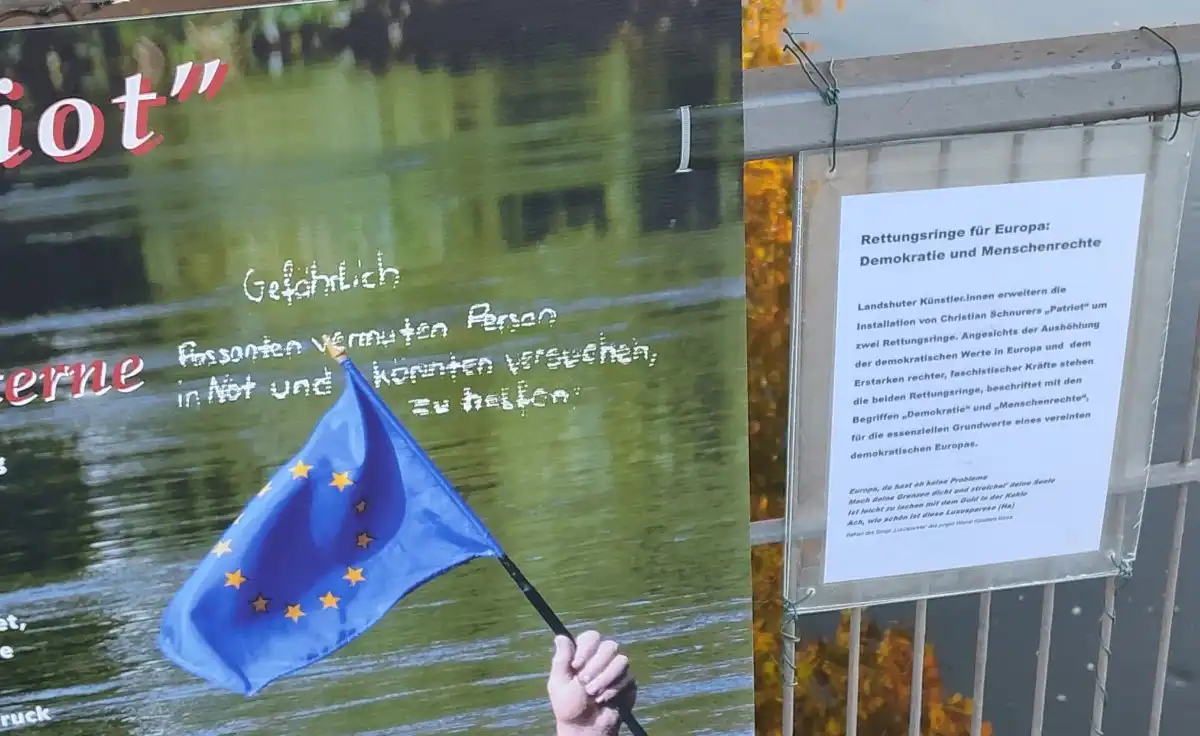 iot”
Gefährlich
Passanten vermuten Person
in Not und könnten versuchen,
zu helfen
terne
et,
e
ruck
Rettungsringe für Europa:
Demokratie und Menschenrechte
Landshuter Künstler.innen erweitern die
Installation von Christian Schnurers „Patriot“ um
zwei Rettungsringe. Angesichts der Aushöhlung
der demokratischen Werte in Europa und dem
Erstarken rechter, faschistischer Kräfte stehen
die beiden Rettungsringe, beschriftet mit den
Begriffen „Demokratie“ und „Menschenrechte“,
für die essenziellen Grundwerte eines vereinten
demokratischen Europas.
Europa, du hast eh keine Probleme
Mach deine Grenzen dicht und streichel' deine Seele
Ist leicht zu lachen mit dem Gold in der Kehle
Ach, wie schön ist diese Luxusparese (Ha)